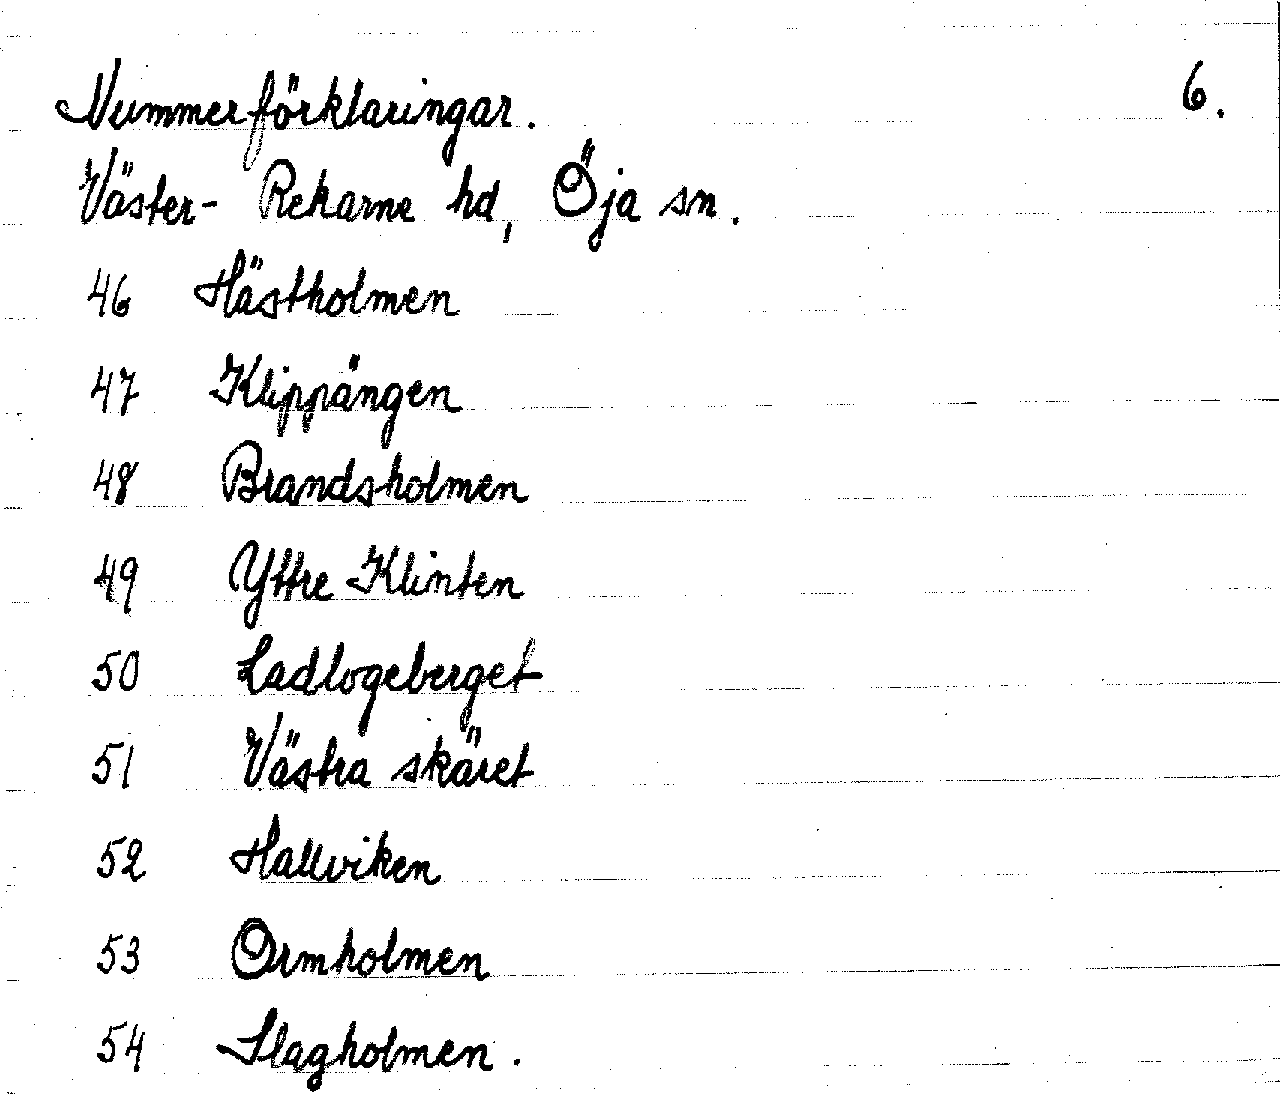 Nummerförklaringar. 6.
Väster-Rekarne hd, Öja sn.
46 Hästholmen
47 Klippängen
48 Brandsholmen
49 Yttre Klinten
50 Ladlogeberget
51 Västra skäret
52 Hallviken
53 Ormholmen
54 Slagholmen.